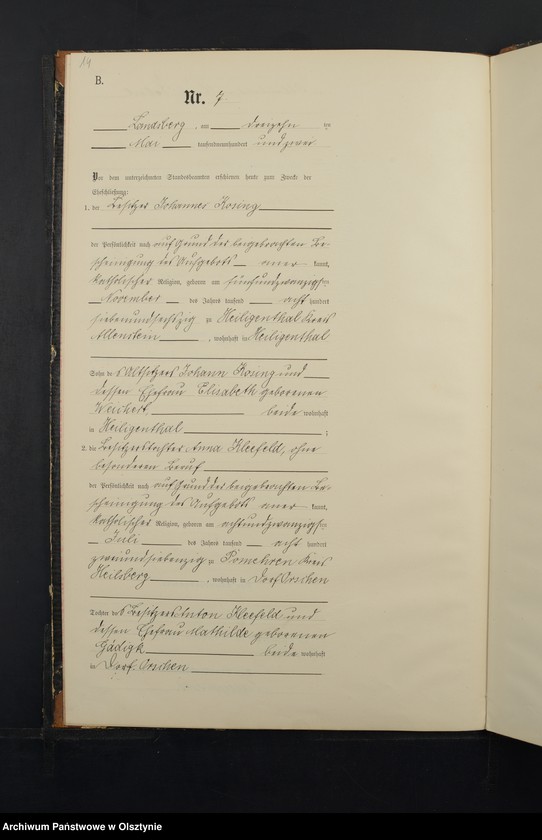 14
B.
Nr. 7
Landsberg, am dreizehn ten
Mai tausendneunhundert und zwei
Vor dem unterzeichneten Standesbeamten erschienen heute zum Zwecke der
Eheschließung:
1. der Besitzer Johannes Kosing
der Persönlichkeit nach auf Grund der beigebrachten Be-
scheinigung des Aufgebots aner kannt,
katholischer Religion, geboren am fünfundzwanzigsten
November des Jahres tausend acht hundert
siebenundsechszig zu Heiligenthal Kreis
Allenstein, wohnhaft in Heiligenthal
Sohn des Altsitzers Johann Kosing und
dessen Ehefrau Elisabeth geborenen
Weichert beide wohnhaft
in Heiligenthal;
2. die Besitzerstochter Anna Kleefeld, ohne
besonderen Beruf
der Persönlichkeit nach auf Grund der beigebrachten Be-
scheinigung des Aufgebots aner kannt,
katholischer Religion, geboren am achtundzwanzigsten
Juli des Jahres tausend acht hundert
zweiundsiebenzig zu Pomehren Kreis
Heilsberg, wohnhaft in Dorf Orschen
Tochter des Besitzers Anton Kleefeld und
dessen Ehefrau Mathilde geborenen
Gädigk beide wohnhaft
in Dorf Orschen
Archiwum Państwowe w Olsztynie